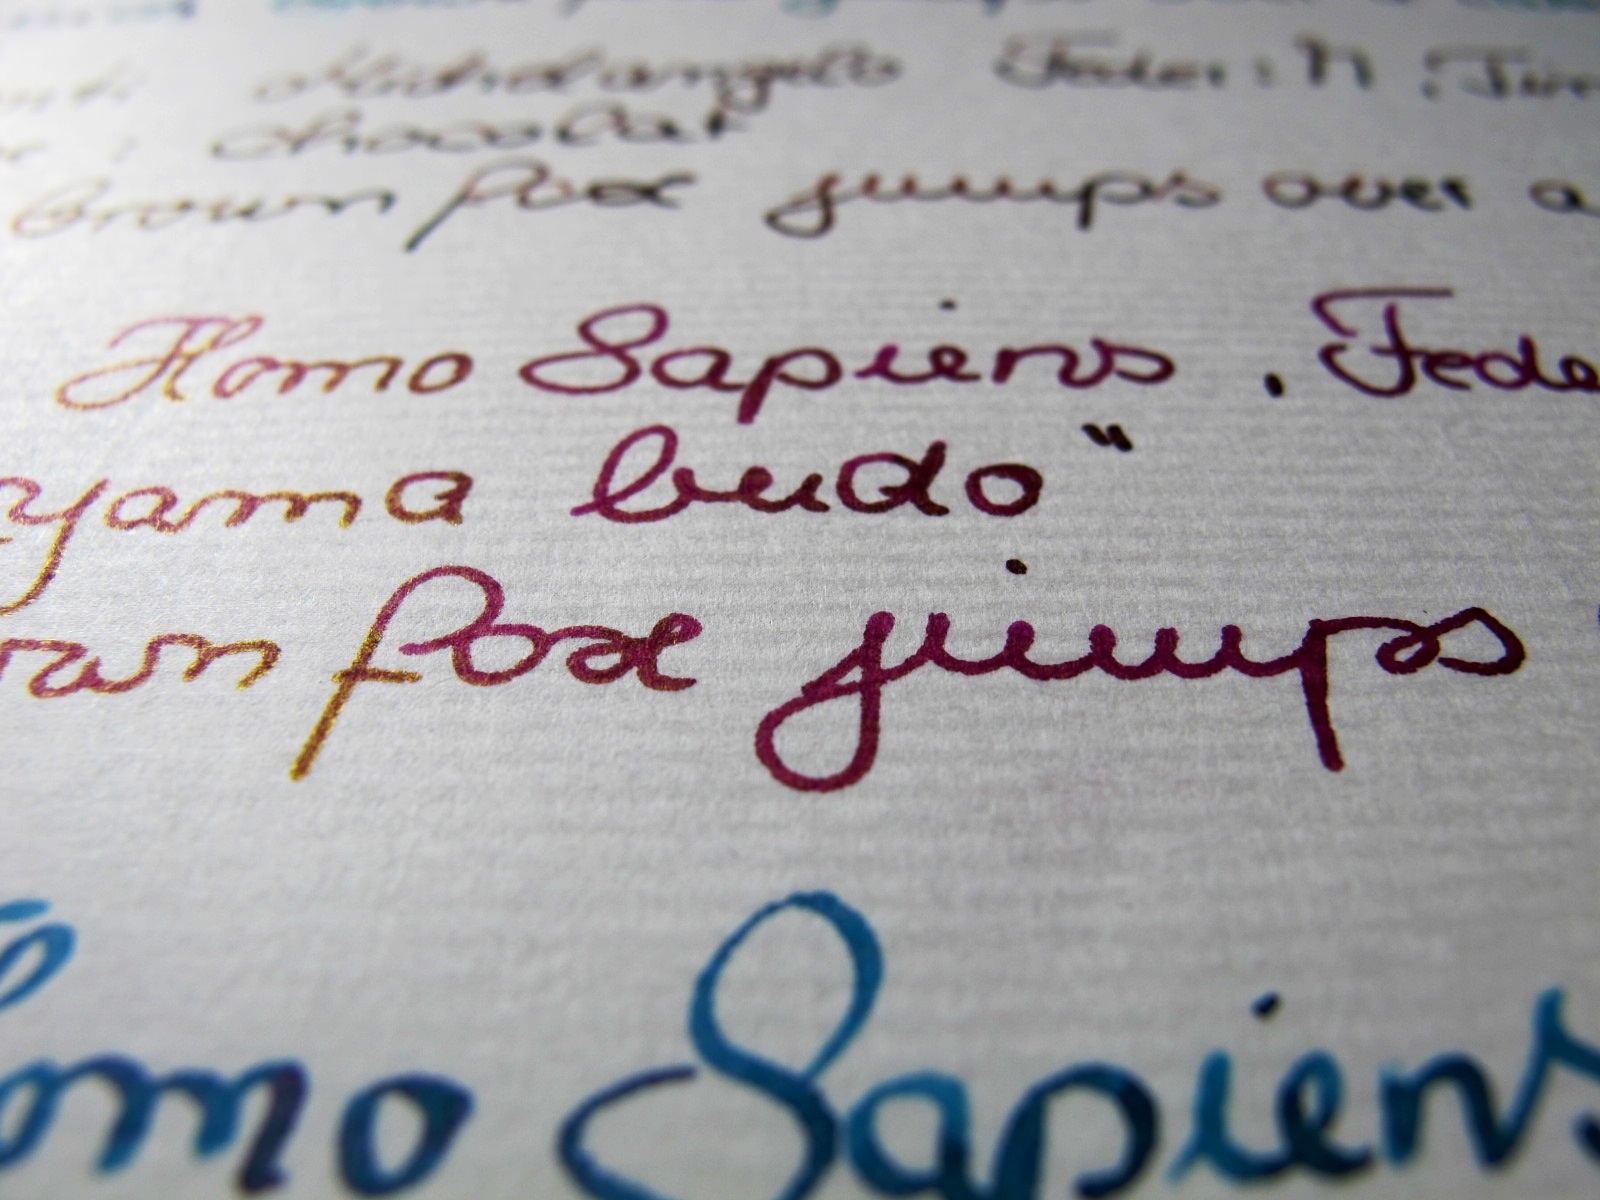 Michelangelo Feder: M
chocolat
brown fox jumps over a
Homo Sapiens . Fede
yama budo"
own fox jumps
omo Sapiens